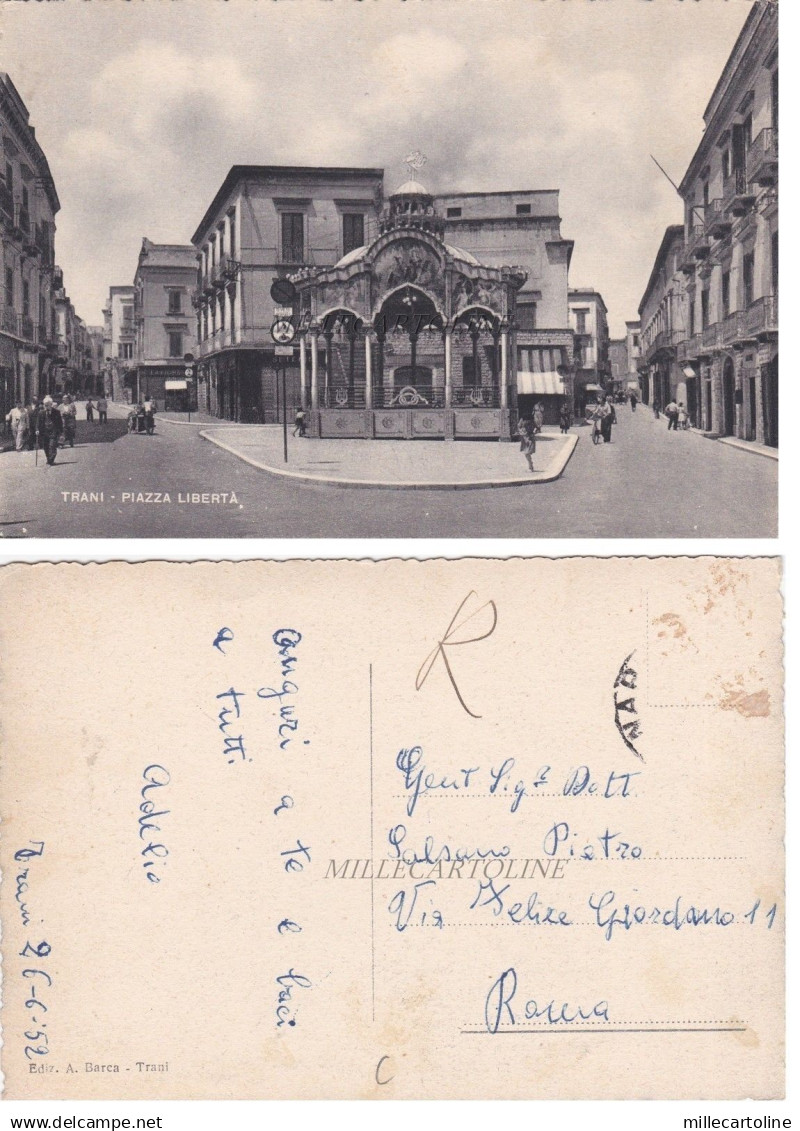 MILLECARTOLINE
TRANI - PIAZZA LIBERTÀ
Auguri a te e baci
a tutti
Adelio
Trani 26-6-'52
Ediz. A. Barca - Trani
R
TRANI
Gent Sigr Dott
Salsano Pietro
MILLECARTOLINE
Via Felice Giordano 11
Roma
C
millecartoline